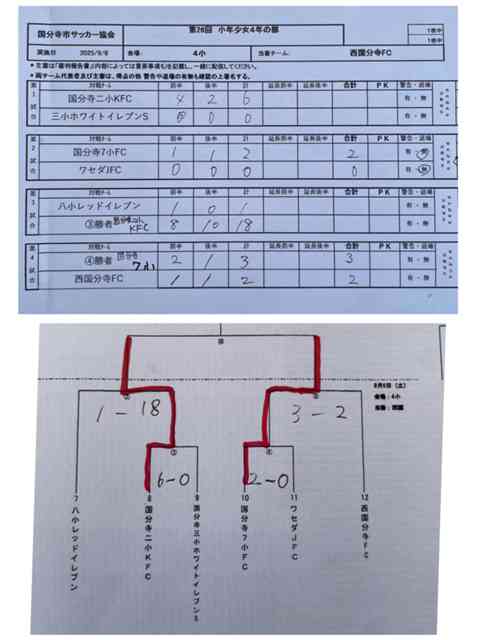 国分寺市サッカー協会 第26回 小年少女4年の部
実施日 2025/9/6 会場: 4小 当番チーム: 西国分寺FC
第1試合 対戦チーム 前半 後半 計 延長前半 延長後半 合計 PK 警告・退場
国分寺二小KFC 4 2 6 有・無
三小ホワイトイレブンS 0 0 0 有・無
第2試合 対戦チーム 前半 後半 計 延長前半 延長後半 合計 PK 警告・退場
国分寺7小FC 1 1 2 2 有・無
ワセダJFC 0 0 0 0 有・無
第3試合 対戦チーム 前半 後半 計 延長前半 延長後半 合計 PK 警告・退場
八小レッドイレブン 1 0 1 有・無
③勝者 国分寺二小KFC 8 10 18 有・無
第4試合 対戦チーム 前半 後半 計 延長前半 延長後半 合計 PK 警告・退場
④勝者 国分寺7小 2 1 3 3 有・無
西国分寺FC 1 1 2 2 有・無
9月6日(土)
会場:4小
1-18 3-2
6-0 2-0
7 八小レッドイレブン
8 国分寺二小KFC
9 国分寺三小ホワイトイレブンS
10 国分寺7小FC
11 ワセダJFC
12 西国分寺FC